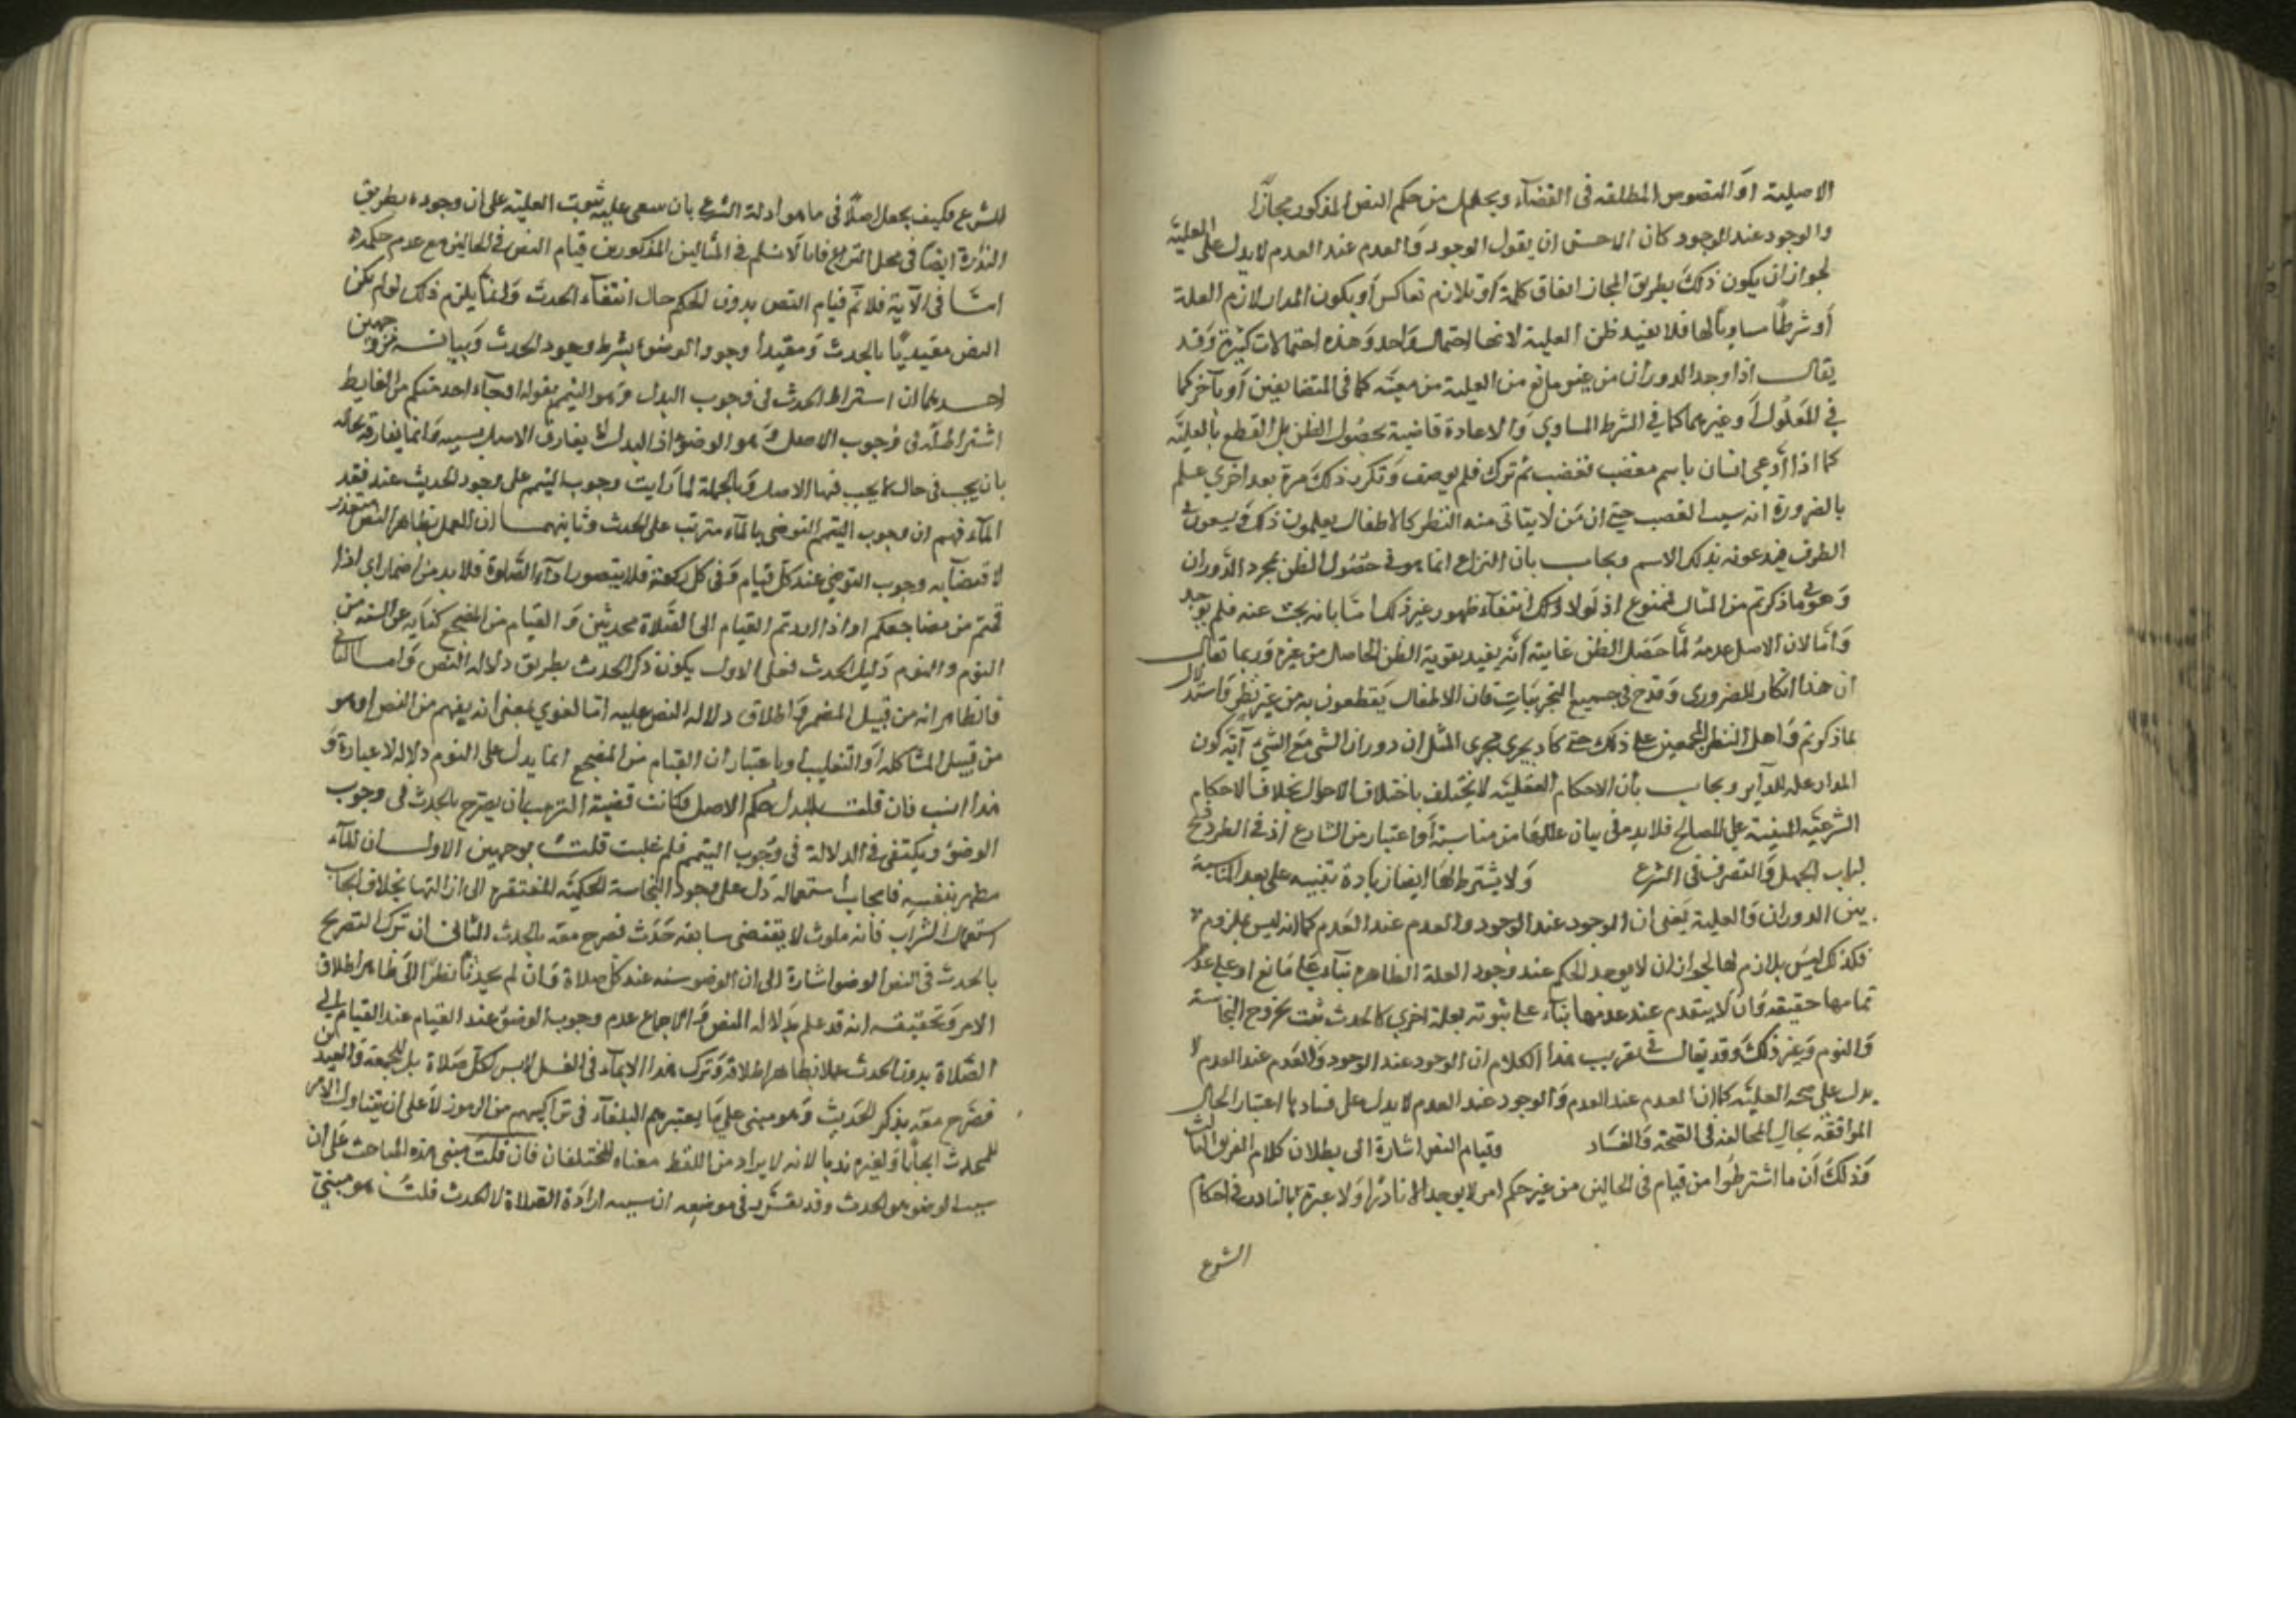 الاصلية او النصوص المطلقه في القضاء ويجعل من حكم النص المذكور مجازًا
والوجود عند الوجود كان الاحسن ان يقول الوجود والعدم عند العدم لا يدل على العلية
لجواز ان يكون ذلك بطريق المجاز اتفاق كلمة او تلازم تعاكس أو يكون المدار لازم العلة
أو شرطًا مساويا لها فلا يفيد ظن العلية لانها احتمال واحد وهذه احتمالات كثيرة وقد
يقال اذا وجد الدوران من غير مانع من العلية من معية كما في المتضايفين أو تأخر كما
في المعلول أو غيرهما كما في الشرط المساوي والاعادة قاضية بحصول الظن بل القطع بالعلية
كما اذا أدعي انسان باسم مغضب فغضب ثم ترك فلم يوصف وتكرر ذلك مرة بعد اخري علم
بالضرورة انه سبب الغضب حتي ان من لا يتاتى منه النظر كالاطفال يعلمون ذلك ويسعون
الطرق فيدعونه بذلك الاسم ويجاب بان النزاع انما هو في حصول الظن بمجرد الدوران
وهو فيما ذكرتم من المثال ممنوع اذ لولا ذلك انتفاء ظهور غير ذلك اما بانه بحث عنه فلم يوجد
واما لان الاصل عدمه لما حصل الظن غايته أنه يفيد تقوية الظن الحاصل من غيره وربما تقال
ان هذا انكار للضروري وقدح في جميع التجربيات فان الاطفال يقطعون به من غير نظر واستدلال
بما ذكرتم واهل النظر المجمعين علي ذلك حتي كاد يجري مجرى المثل ان دوران الشي مع الشئ آية كون
المدار علة للدآير ويجاب بأن الاحكام العقلية لا يختلف باختلاف الاحوال بخلاف الاحكام
الشرعية المبنية على المصالح فلا بد في بيان عللها من مناسبة أو اعتبار من الشارع اذ في الطرد فتح
لباب الجهل والتصرف في الشرع ولا يشترط لها ايضا زيادة تنبيه على بعد المناسبة
بين الدوران والعلية يعني ان الموجود عند الوجود والعدم عند العدم كما انه ليس بملزوم
فكذلك ليس بلازم لها لجواز ان لا يوجد الحكم عند وجود العلة الظاهرة بناء علي مانع او علي عدم
تمامها حقيقه وان لا ينعدم عند عدمها بناء علي ثبوته بعلة اخري كالحدث ثبت بخروج النجاسة
والنوم وغير ذلك وقد يقال في تقريب هذا الكلام ان الوجود عند الوجود والعدم عند العدم لا
يدل على صحه العلية كما ان العدم عند العدم والوجود عند العدم لا يدل على فسادها اعتبار الحال
الموافقة بحال المخالفة في الصحة والفساد وقيام النص اشارة الى بطلان كلام الفريق الثالث
وذلك أن ما اشترطوا من قيام في الحالين من غير حكم امر لا يوجد الا نادرًا ولا عبرة بالنادر في احكام
الشرع
للشرع فكيف يجعل اصلًا في ما هو ادلة الشرع بان سعى عليه ثبوت العلية على ان وجوده بطريق
الندرة ايضا في محل النزاع فانا لا نسلم في المثالين المذكورين قيام النص في الحالين مع عدم حكمه
اما في الآية فلا نم قيام النص بدون الحكم حال انتفاء الحدث وانما يلزم ذلك لو لم يكن
النص مقيدًا بالحدث ومفيدا وجود الوضوء بشرط وجود الحدث وبيانه من وجهين
احدهما ان اشتراط الحدث في وجوب البدل وهو التيمم بقوله او جآء احد منكم من الغايط
اشتراط له في وجوب الاصل وهو الوضوء اذ البدل لا يفارق الاصل بسببه وانما يفارقه بحاله
بان يجب في حال لا يجب فيها الاصل وبالجملة لما رايت وجوب التيمم على وجود الحديث عند فقد
المآء فهم ان وجوب التيمم التوضي بالمآء مترتب على الحدث وثانيهما ان العمل بظاهر النص متعذر
لاقتضآيه وجوب التوضي عند كل قيام وفي كل ركعة فلا يتصور ادآء الصلوة فلا بد من اضمار اي اذا
قمتم من مضاجعكم او اذا اردتم القيام الى الصلاة محدثين والقيام من المضجع كناية عن التنبه من
النوم والنوم دليل الحدث فعلى الاول يكون ذكر الحدث بطريق دلاله النص واما الثاني
فالظاهر انه من قبيل المضمر واطلاق دلاله النص عليه اما لغوي بمعنى انه يفهم من النص او هو
من قبيل المشاكله او التغليب او باعتبار ان القيام من المضجع انما يدل على النوم دلاله لا عبارة و
هذا انسب فان قلت للبدل حكم الاصل فكانت قضية الترتيب ان يصرح بالحدث في وجوب
الوضؤ ويكتفى في الدلالة في وجوب التيمم فلم غلبت قلت بوجهين الاول ان المآء
مطهر بنفسه فايجاب استعماله دل على وجود النجاسة الحكمية المفتقرة الى ازالتها بخلاف ايجاب
استعمال التراب فانه ملوث لا يقتضى سابقه حدث فصرح معه بالحدث الثاني ان ترك التصريح
بالحدث في النص الوضوء اشارة الى ان الوضو سنه عند كل صلاة وان لم يحدث نظرًا الى ظاهر اطلاق
الامر وتحقيقه انه قد علم بدلاله النص والاجماع عدم وجوب الوضوء عند القيام الي
الصلاة بدون الحدث عملا بظاهر اطلاقه وترك هذا الايمآء في الغسل لانه ليس لكل صلاة بل للجمعة والعيدين
فصرح معه بذكر الحديث وهو مبني علي ما يعتبرهم البلغآء في تراكيبهم من الرموز لا على ان يتناول الامر
للمحدث ايجابا ولغيره ندبا لانه لا يراد من اللفظ معناه المختلفان فان قلت مبنى هذه المباحث على أن
سبب الوضوء هو الحدث وقد تقرر في موضعه ان سببه ارادة الصلاة لا الحدث قلت هو مبني